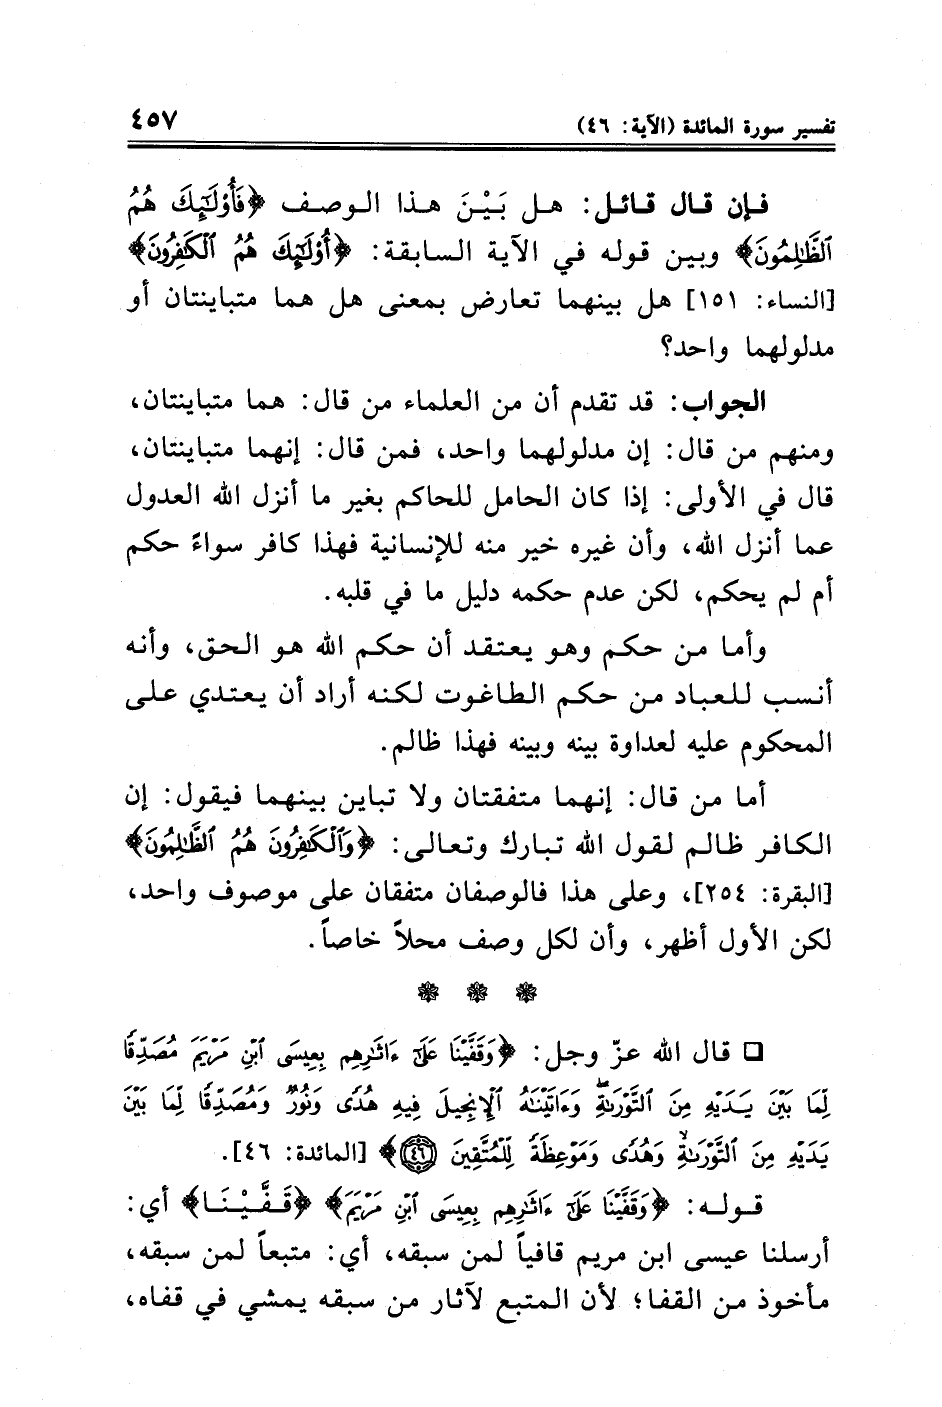 تفسير سورة المائدة (الآية: ٤٦) ٤٥٧
فإن قال قائل: هل بَيْنَ هذا الوصف ﴿فَأُوْلَٰٓئِكَ هُمُ
ٱلظَّٰلِمُونَ﴾ وبين قوله في الآية السابقة: ﴿أُوْلَٰٓئِكَ هُمُ ٱلْكَٰفِرُونَ﴾
[النساء: ١٥١] هل بينهما تعارض بمعنى هل هما متباينتان أو
مدلولهما واحد؟
الجواب: قد تقدم أن من العلماء من قال: هما متباينتان،
ومنهم من قال: إن مدلولهما واحد، فمن قال: إنهما متباينتان،
قال في الأولى: إذا كان الحامل للحاكم بغير ما أنزل الله العدول
عما أنزل الله، وأن غيره خير منه للإنسانية فهذا كافر سواءً حكم
أم لم يحكم، لكن عدم حكمه دليل ما في قلبه.
وأما من حكم وهو يعتقد أن حكم الله هو الحق، وأنه
أنسب للعباد من حكم الطاغوت لكنه أراد أن يعتدي على
المحكوم عليه لعداوة بينه وبينه فهذا ظالم.
أما من قال: إنهما متفقتان ولا تباين بينهما فيقول: إن
الكافر ظالم لقول الله تبارك وتعالى: ﴿وَٱلْكَٰفِرُونَ هُمُ ٱلظَّٰلِمُونَ﴾
[البقرة: ٢٥٤]، وعلى هذا فالوصفان متفقان على موصوف واحد،
لكن الأول أظهر، وأن لكل وصف محلاً خاصاً.
❁ ❁ ❁
❑ قال الله عزّ وجل: ﴿وَقَفَّيْنَا عَلَىٰٓ ءَاثَٰرِهِم بِعِيسَى ٱبْنِ مَرْيَمَ مُصَدِّقًا
لِّمَا بَيْنَ يَدَيْهِ مِنَ ٱلتَّوْرَىٰةِ ۖ وَءَاتَيْنَٰهُ ٱلْإِنجِيلَ فِيهِ هُدًى وَنُورٌ وَمُصَدِّقًا لِّمَا بَيْنَ
يَدَيْهِ مِنَ ٱلتَّوْرَىٰةِ وَهُدًى وَمَوْعِظَةً لِّلْمُتَّقِينَ ٤٦﴾ [المائدة: ٤٦].
قوله: ﴿وَقَفَّيْنَا عَلَىٰٓ ءَاثَٰرِهِم بِعِيسَى ٱبْنِ مَرْيَمَ﴾ ﴿قَفَّيْنَا﴾ أي:
أرسلنا عيسى ابن مريم قافياً لمن سبقه، أي: متبعاً لمن سبقه،
مأخوذ من القفا؛ لأن المتبع لآثار من سبقه يمشي في قفاه،